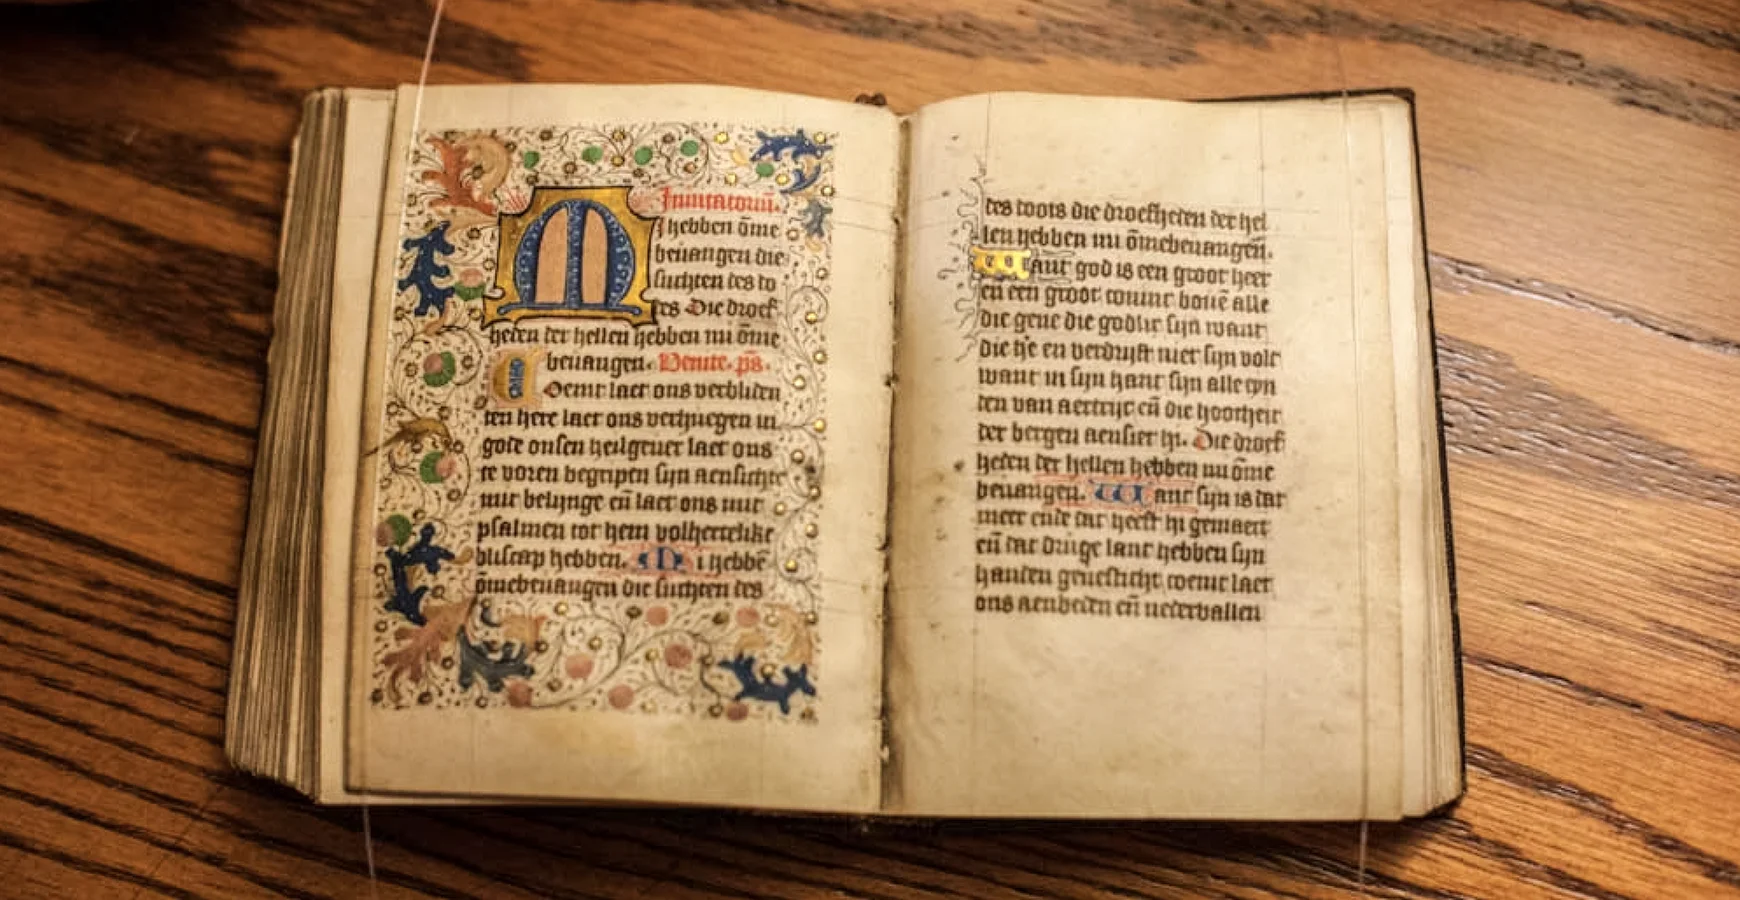 Inuitatoriū.
M
I hebben ōme
beuangen die
suchten des do
des Die droef
heden der hellen hebben mi ōme
beuangen. Venite. ps̄.
Coemt laet ons verbliden
den here laet ons verhuegen in
gode onsen heilgeuer laet ons
te voren begripen sijn aensichte
mit belijnge eñ laet ons mit
psalmen tot hem volhertelike
bliscap hebben. Mi hebbē
ōmebeuangen die suchten des
des doots die droefheden der hel
len hebben mi ōmebeuangeñ.
Want god is een groot heer
en een groot coninc bouē alle
die gene die godlic sijn want
die h'e en verdrijft niet sijn volc
want in sijn hant sijn alle eyn
den van aertrijc eñ die hoocheit
der bergen aensiet hi. Die droef
heden der hellen hebben mi ōme
beuangen. Want sijn is dat
meer ende dat heeft hi gemaect
eñ dat druge lant hebben sijn
handen gevesticht coemt laet
ons aenbeden eñ nedervallen